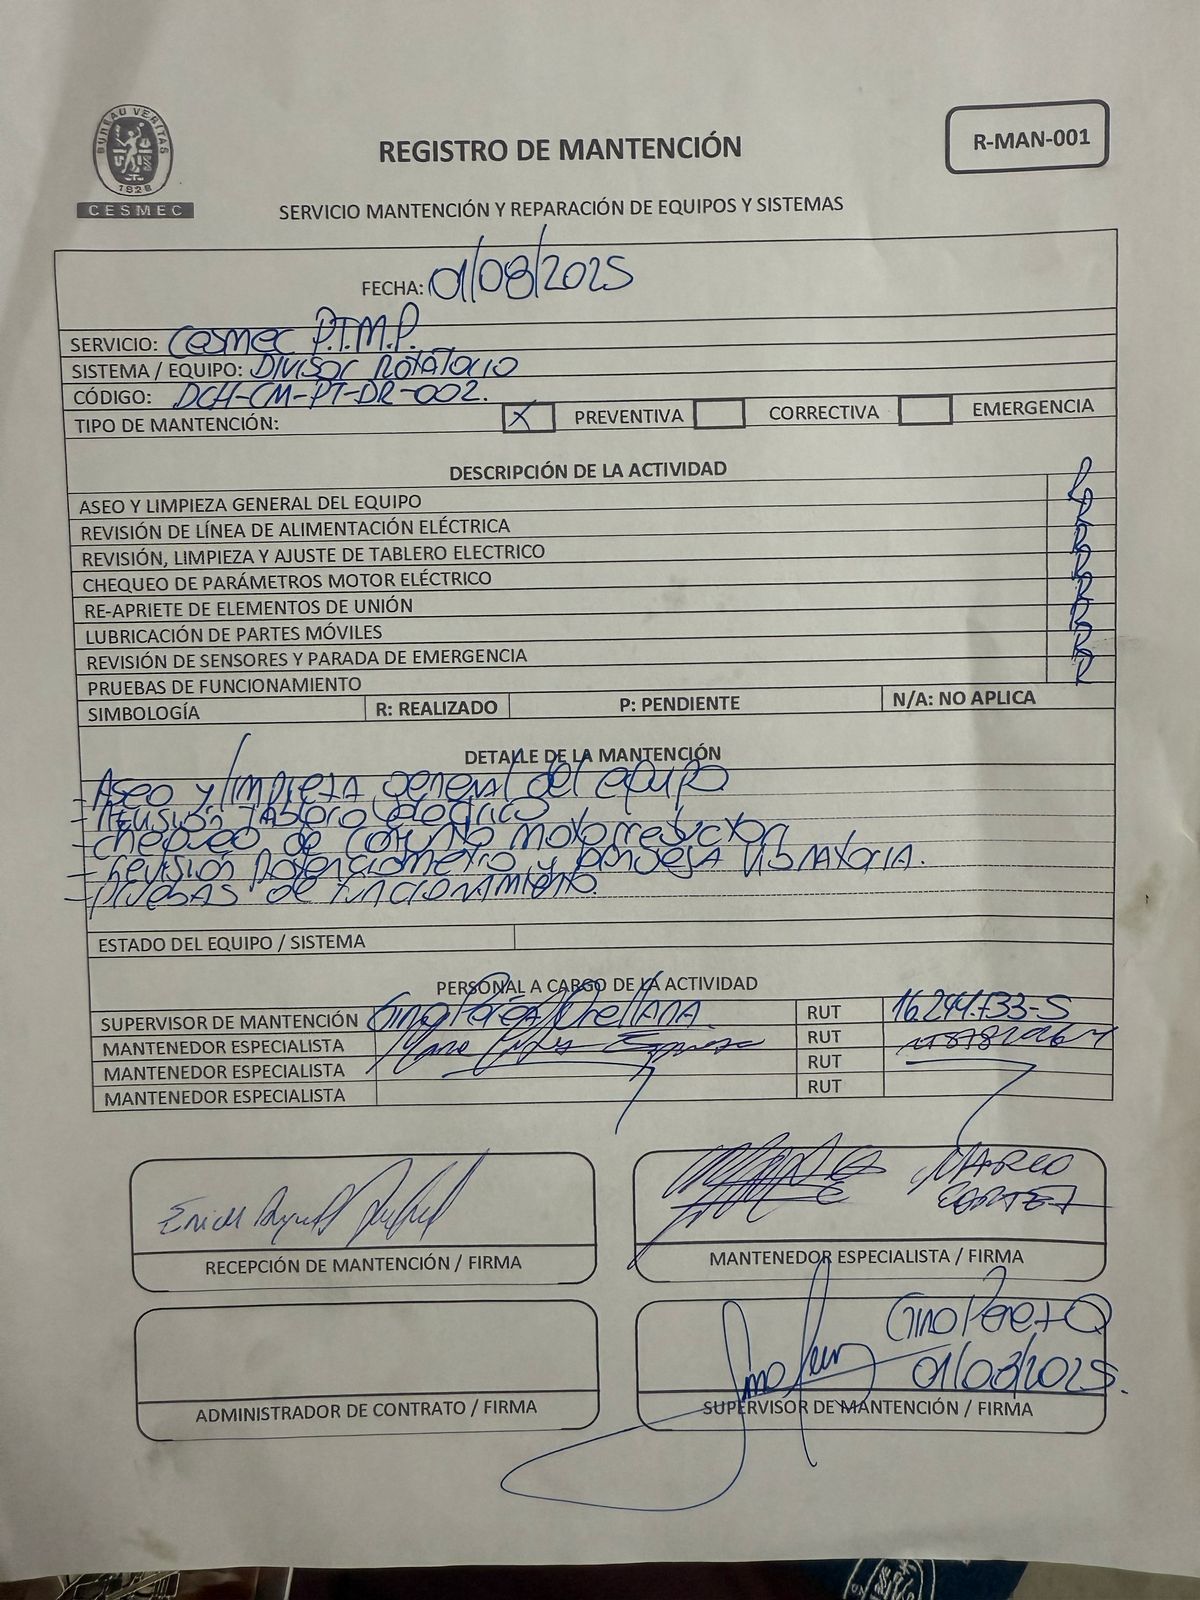 BUREAU VERITAS
1828
CESMEC
REGISTRO DE MANTENCIÓN
R-MAN-001
SERVICIO MANTENCIÓN Y REPARACIÓN DE EQUIPOS Y SISTEMAS
FECHA: 01/08/2025
SERVICIO: Cesmec P.T.M.P.
SISTEMA / EQUIPO: Divisor Rotatorio
CÓDIGO: DCH-CM-PT-DR-002.
TIPO DE MANTENCIÓN: X PREVENTIVA CORRECTIVA EMERGENCIA
DESCRIPCIÓN DE LA ACTIVIDAD
ASEO Y LIMPIEZA GENERAL DEL EQUIPO R
REVISIÓN DE LÍNEA DE ALIMENTACIÓN ELÉCTRICA R
REVISIÓN, LIMPIEZA Y AJUSTE DE TABLERO ELECTRICO R
CHEQUEO DE PARÁMETROS MOTOR ELÉCTRICO R
RE-APRIETE DE ELEMENTOS DE UNIÓN R
LUBRICACIÓN DE PARTES MÓVILES R
REVISIÓN DE SENSORES Y PARADA DE EMERGENCIA R
PRUEBAS DE FUNCIONAMIENTO R
SIMBOLOGÍA R: REALIZADO P: PENDIENTE N/A: NO APLICA
DETALLE DE LA MANTENCIÓN
- Aseo y limpieza general del equipo
- Revisión tablero electrico
- chequeo de conjunto motorreductor
- revisión potenciometro y bandeja vibratoria.
- pruebas de funcionamiento
ESTADO DEL EQUIPO / SISTEMA
PERSONAL A CARGO DE LA ACTIVIDAD
SUPERVISOR DE MANTENCIÓN Gino Pérez Orellana. RUT 16.244.733-5
MANTENEDOR ESPECIALISTA RUT
MANTENEDOR ESPECIALISTA RUT
MANTENEDOR ESPECIALISTA RUT
Erich
MARCO
CORTEZ
RECEPCIÓN DE MANTENCIÓN / FIRMA
MANTENEDOR ESPECIALISTA / FIRMA
Gino Perez O
01/08/2025.
ADMINISTRADOR DE CONTRATO / FIRMA
SUPERVISOR DE MANTENCIÓN / FIRMA